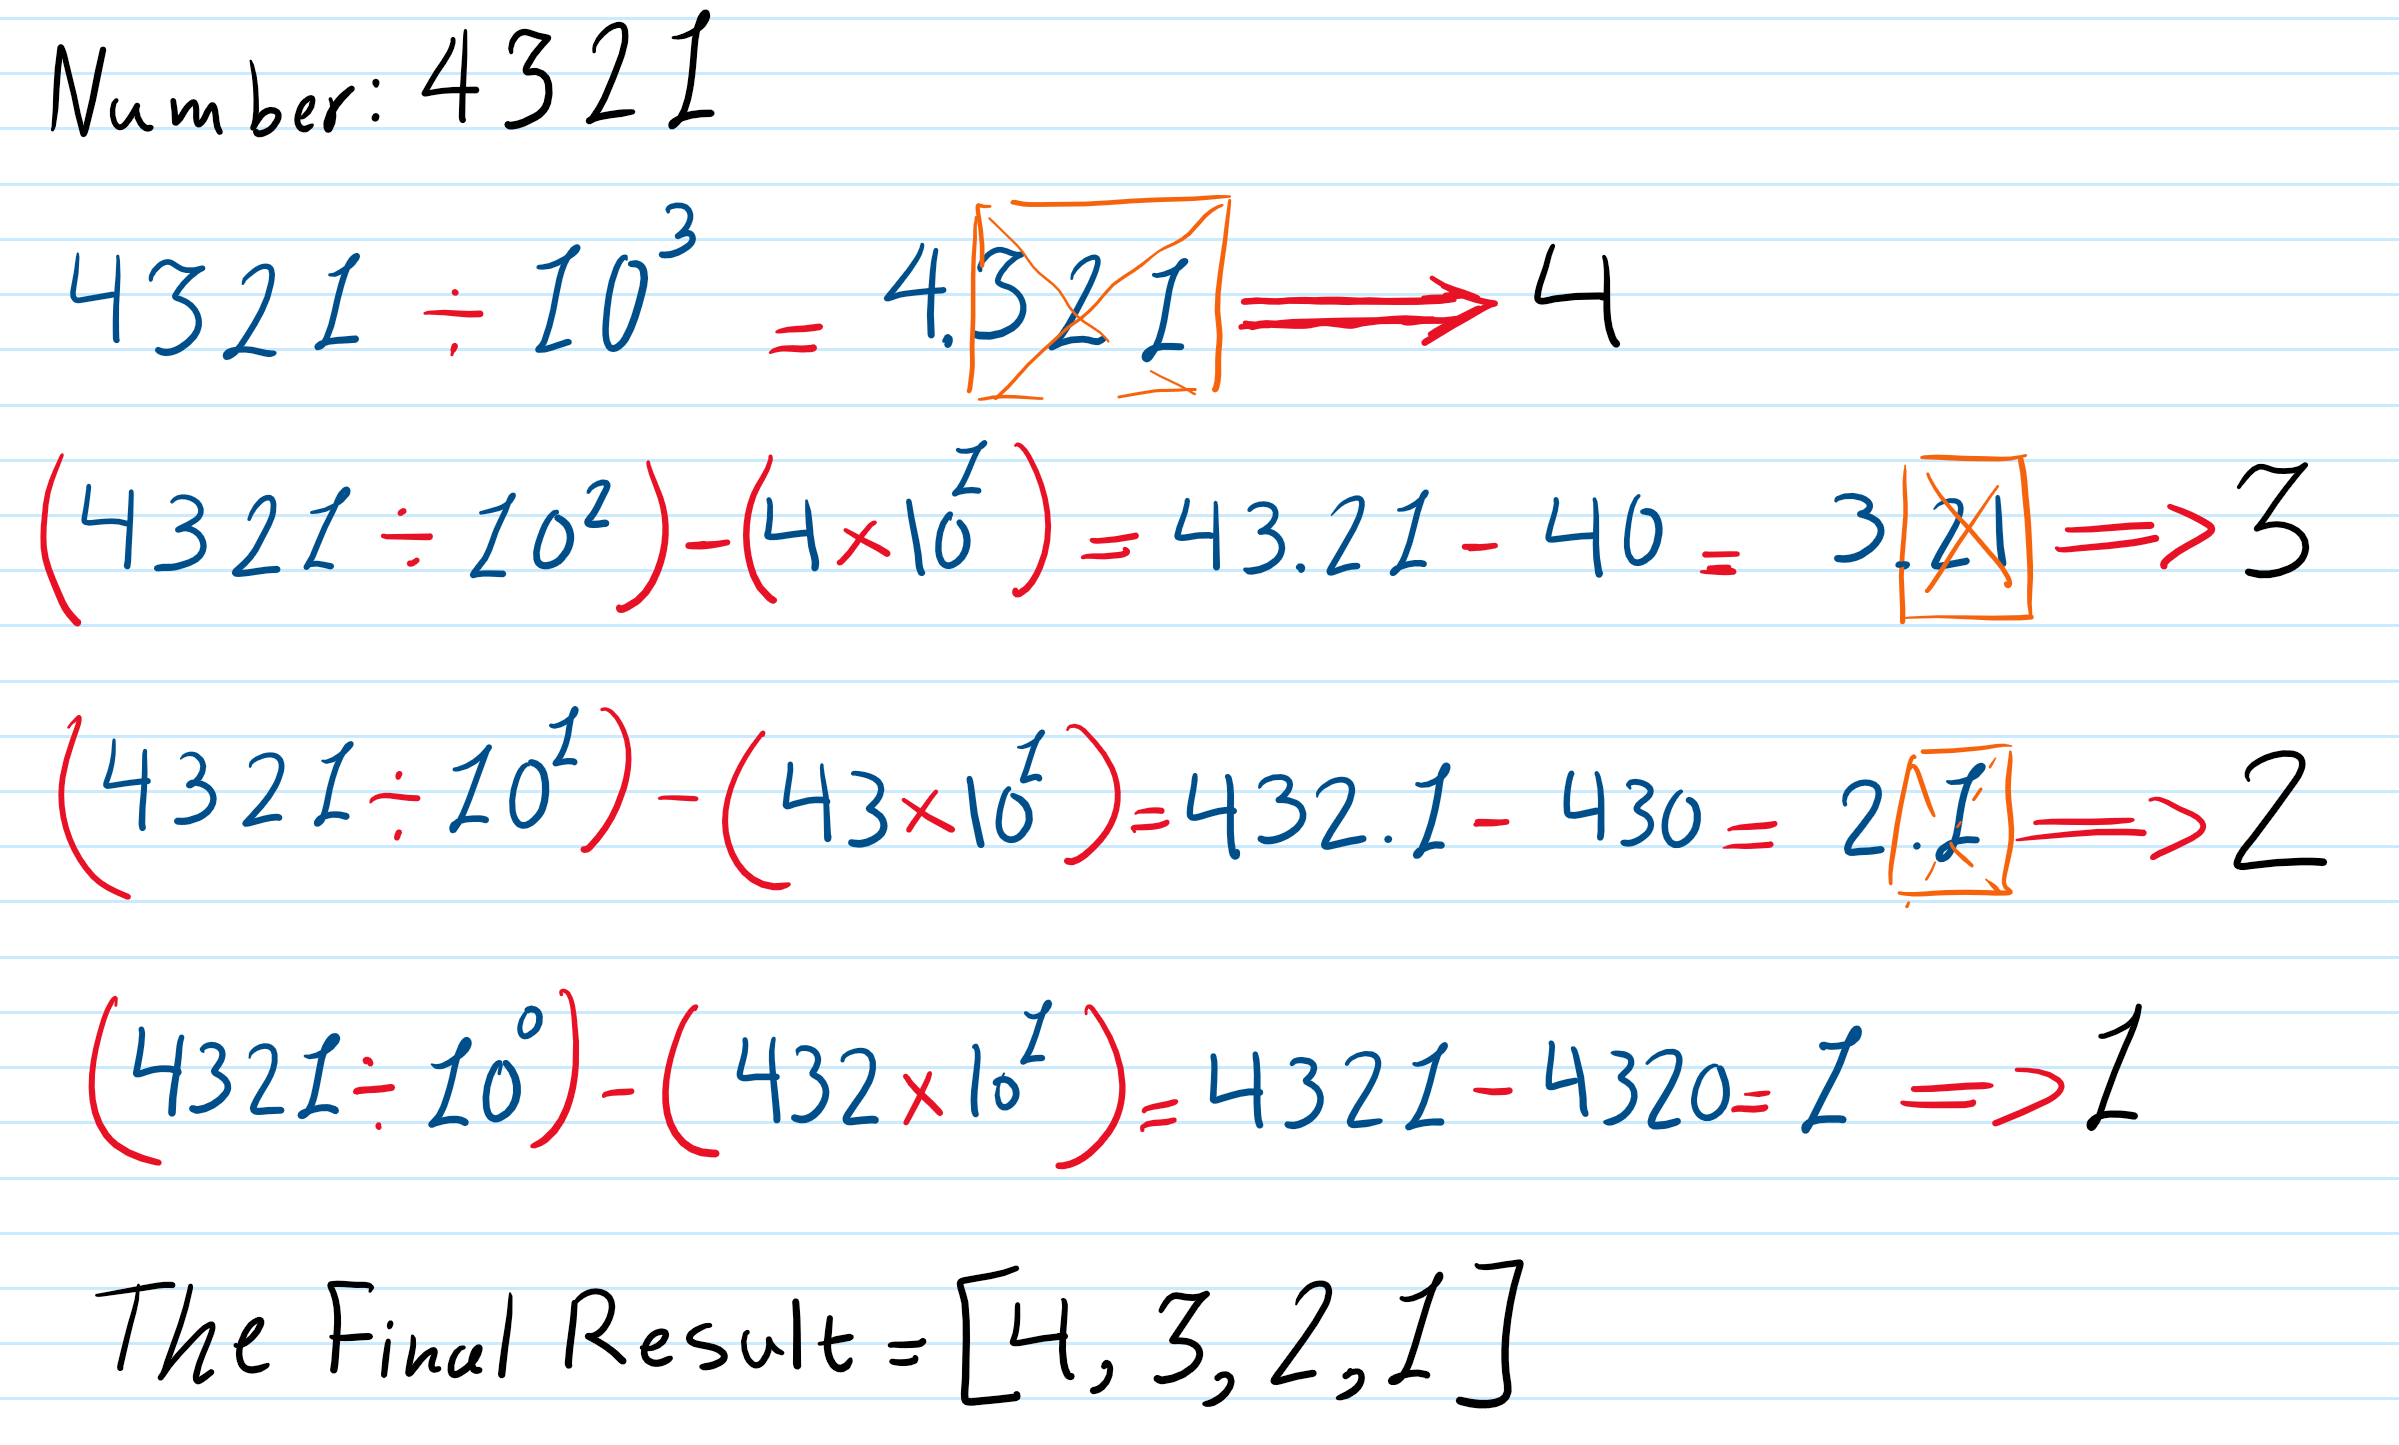 Number: 4321
4321 ÷ 10³ = 4.321 ⟹ 4
(4321 ÷ 10²) - (4 × 10¹) = 43.21 - 40 = 3.21 => 3
(4321 ÷ 10¹) - (43 × 10¹) = 432.1 - 430 = 2.1 => 2
(4321 ÷ 10⁰) - (432 × 10¹) = 4321 - 4320 = 1 => 1
The Final Result = [4, 3, 2, 1]